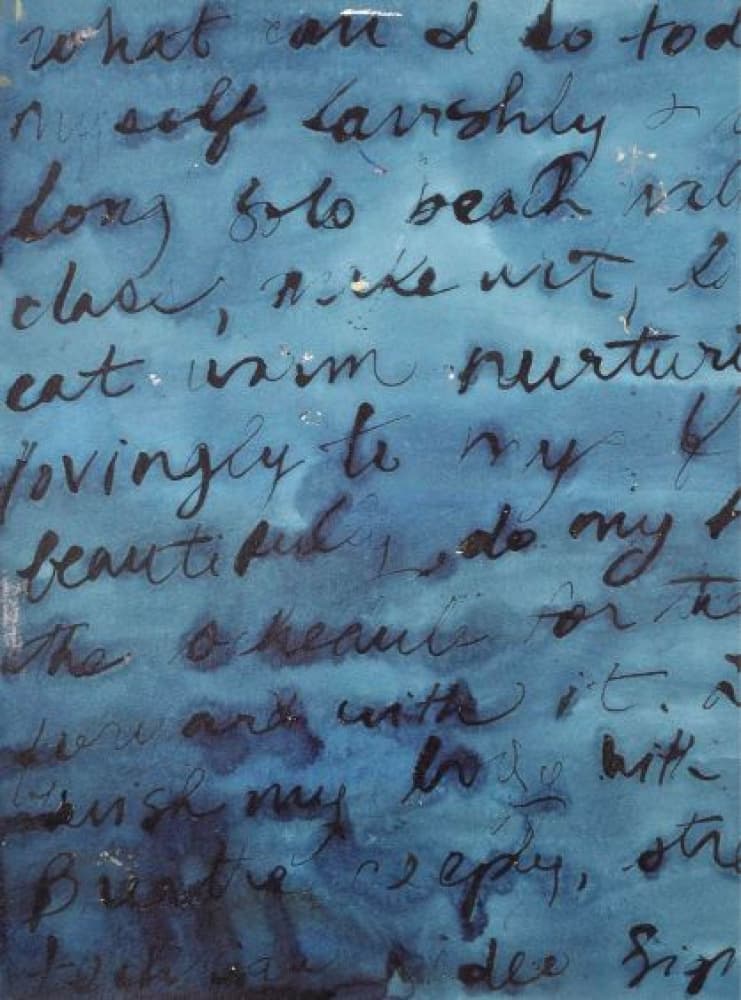 what can I do tod
my self lavishly
Long solo beach wal
class, make art,
eat warm nurturi
lovingly to my
beautifully, do my
the for the
forward with it.
lavish my body with
Breathe deeply, stre